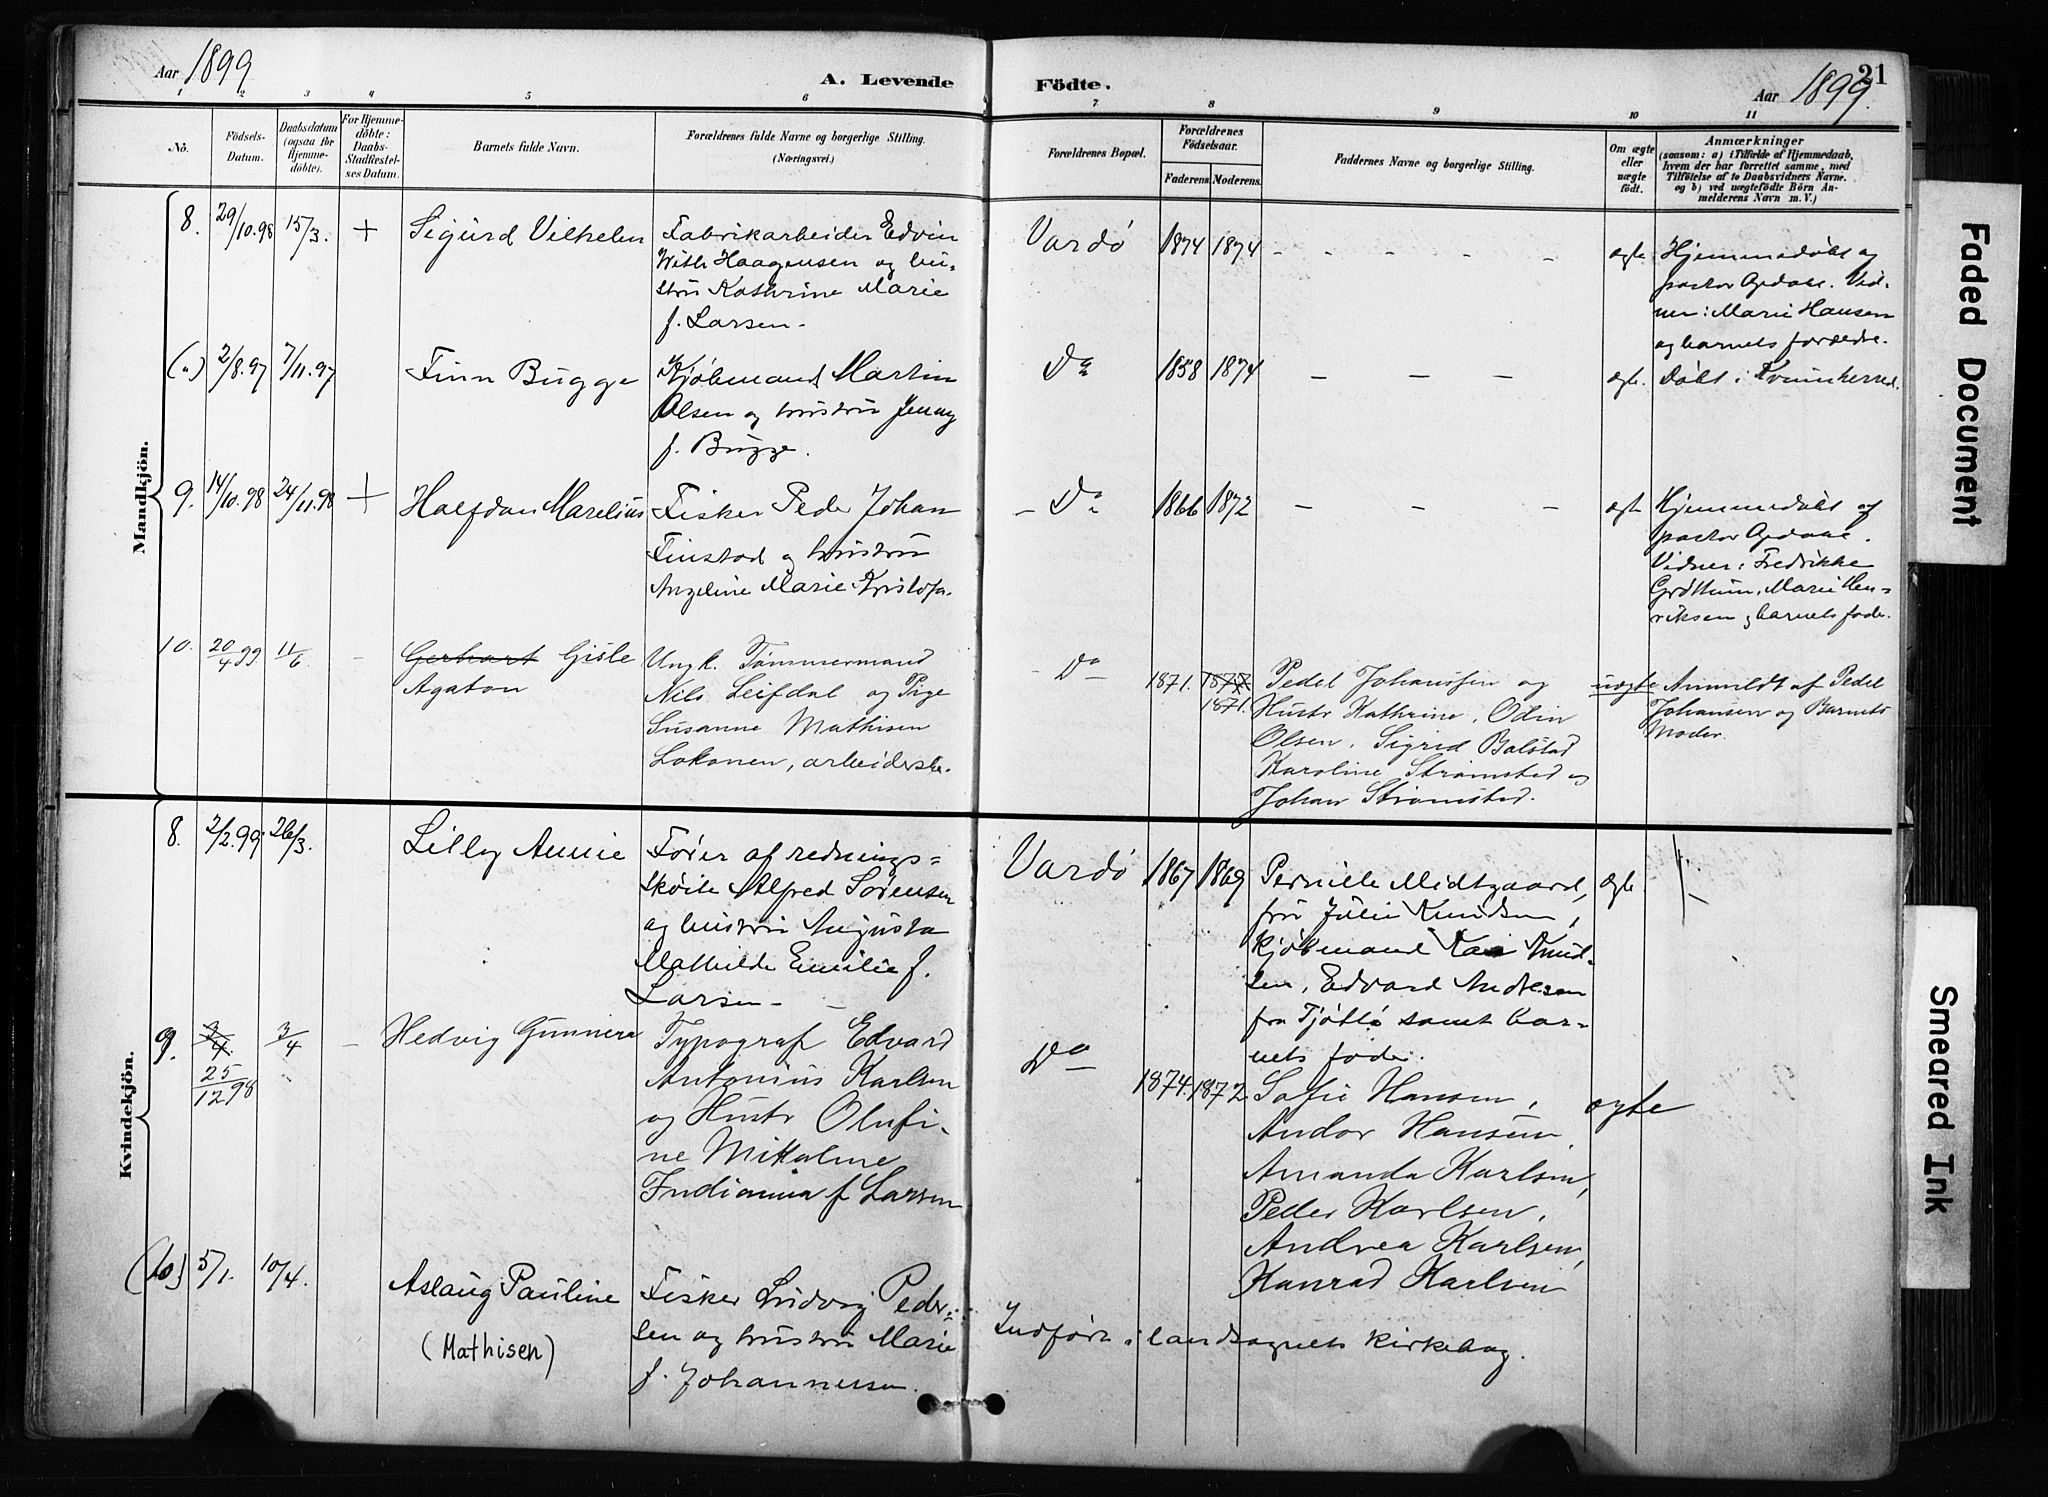 Aar 1899
A. Levende
Födte.
Aar 1899.
21
1 2 3 4 5 6 7 8 9 10 11
Nô.
Födsels-
Datum.
Daabsdatum
(ogsaa for
Hjemme-
døbte).
For Hjemme-
døbte:
Daabs-
Stadfæstel-
ses Datum.
Barnets fulde Navn.
Forældrenes fulde Navne og borgerlige Stilling.
(Næringsvei.)
Forældrenes Bopæl.
Forældrenes
Födselsaar.
Faderens. Moderens.
Faddernes Navne og borgerlige Stilling.
Om ægte
eller
uægte
födt.
Anmærkninger
(saasom: a) i Tilfælde af Hjemmedaab,
hvem der har forrettet samme, med
Tilföielse af to Daabsvidners Navne.
og b) ved uægtefödte Börn An-
melderens Navn m. V.)
Mandkjön.
8. 29/10.98 15/3. + Sigurd Vilhelm
Fabrikarbeider Edvin
With Haagensen og hu-
stru Kathrine Marie
f. Larsen.
Vardö 1874 1874 - - - - - ægte
Hjemmedöbt af
pastor Opdahl. Vid-
ner: Marie Hansen
og barnets forældre.
2/8.97 7/11.97 Finn Bugge
Kjöbmand Martin
Olsen og hustru Jenny
f. Bugge.
Do 1858 1874 - - - ægte. Döbt i Kvinnherred.
9. 14/10.98 24/11.98 + Halfdan Marelius
Fisker Peder Johan
Finstad og hustru
Angeline Marie Kristofs.
- Do 1866 1872 - - - ægte
Hjemmedöbt af
pastor Opdahl.
Vidner: Fredrikke
Gröttum, Marie Hen-
riksen og barnets fader.
10. 20/4 99 11/6 - Gerhart Gisle
Agaton
Ungk. Tømmermand
Nils Leifdal og Pige
Susanne Mathisen
Lokonen, arbeiderske.
- Do 1871. 1877
1871.
Peder Johanssen og
Hustr Kathrine, Odin
Olsen, Sigrid Bolstad
Karoline Strømsted og
Johan Strømsted.
uægte
Anmeldt af Peder
Johansen og Barnets
Moder.
Kvindekjön.
8. 2/2.99. 26/3. - Lilly Annie
Fører af rednings=
sköite Alfred Sørensen
og hustru Augusta
Mathilde Emilie f.
Larsen -
Vardö 1867 1869
Pernille Midtgaard,
fru Julie Knudsen,
kjöbmand Kai Knud-
sen, Edvard Andresen
fra Tjöttö samt bar-
nets fader.
ægte
9. 3/4. 3/4 - Hedvig Gunnera
25/12 98
Typograf Edvard
Antonius Karlsen
og Hustr Olufi-
ne Mikaline
Indianna f Larsen
Do 1874. 1872
Sofie Hansen,
Andor Hansen,
Amanda Karlsen,
Peder Karlsen,
Andrea Karlsen,
Konrad Karlsen
ægte
(10) 5/1. 10/4. Aslaug Pauline
(Mathisen)
Fisker Ludvig Peder-
sen og hustru Marie
f. Johannessen.
Indført i landsognets kirkebog.
Faded Document
Smeared Ink